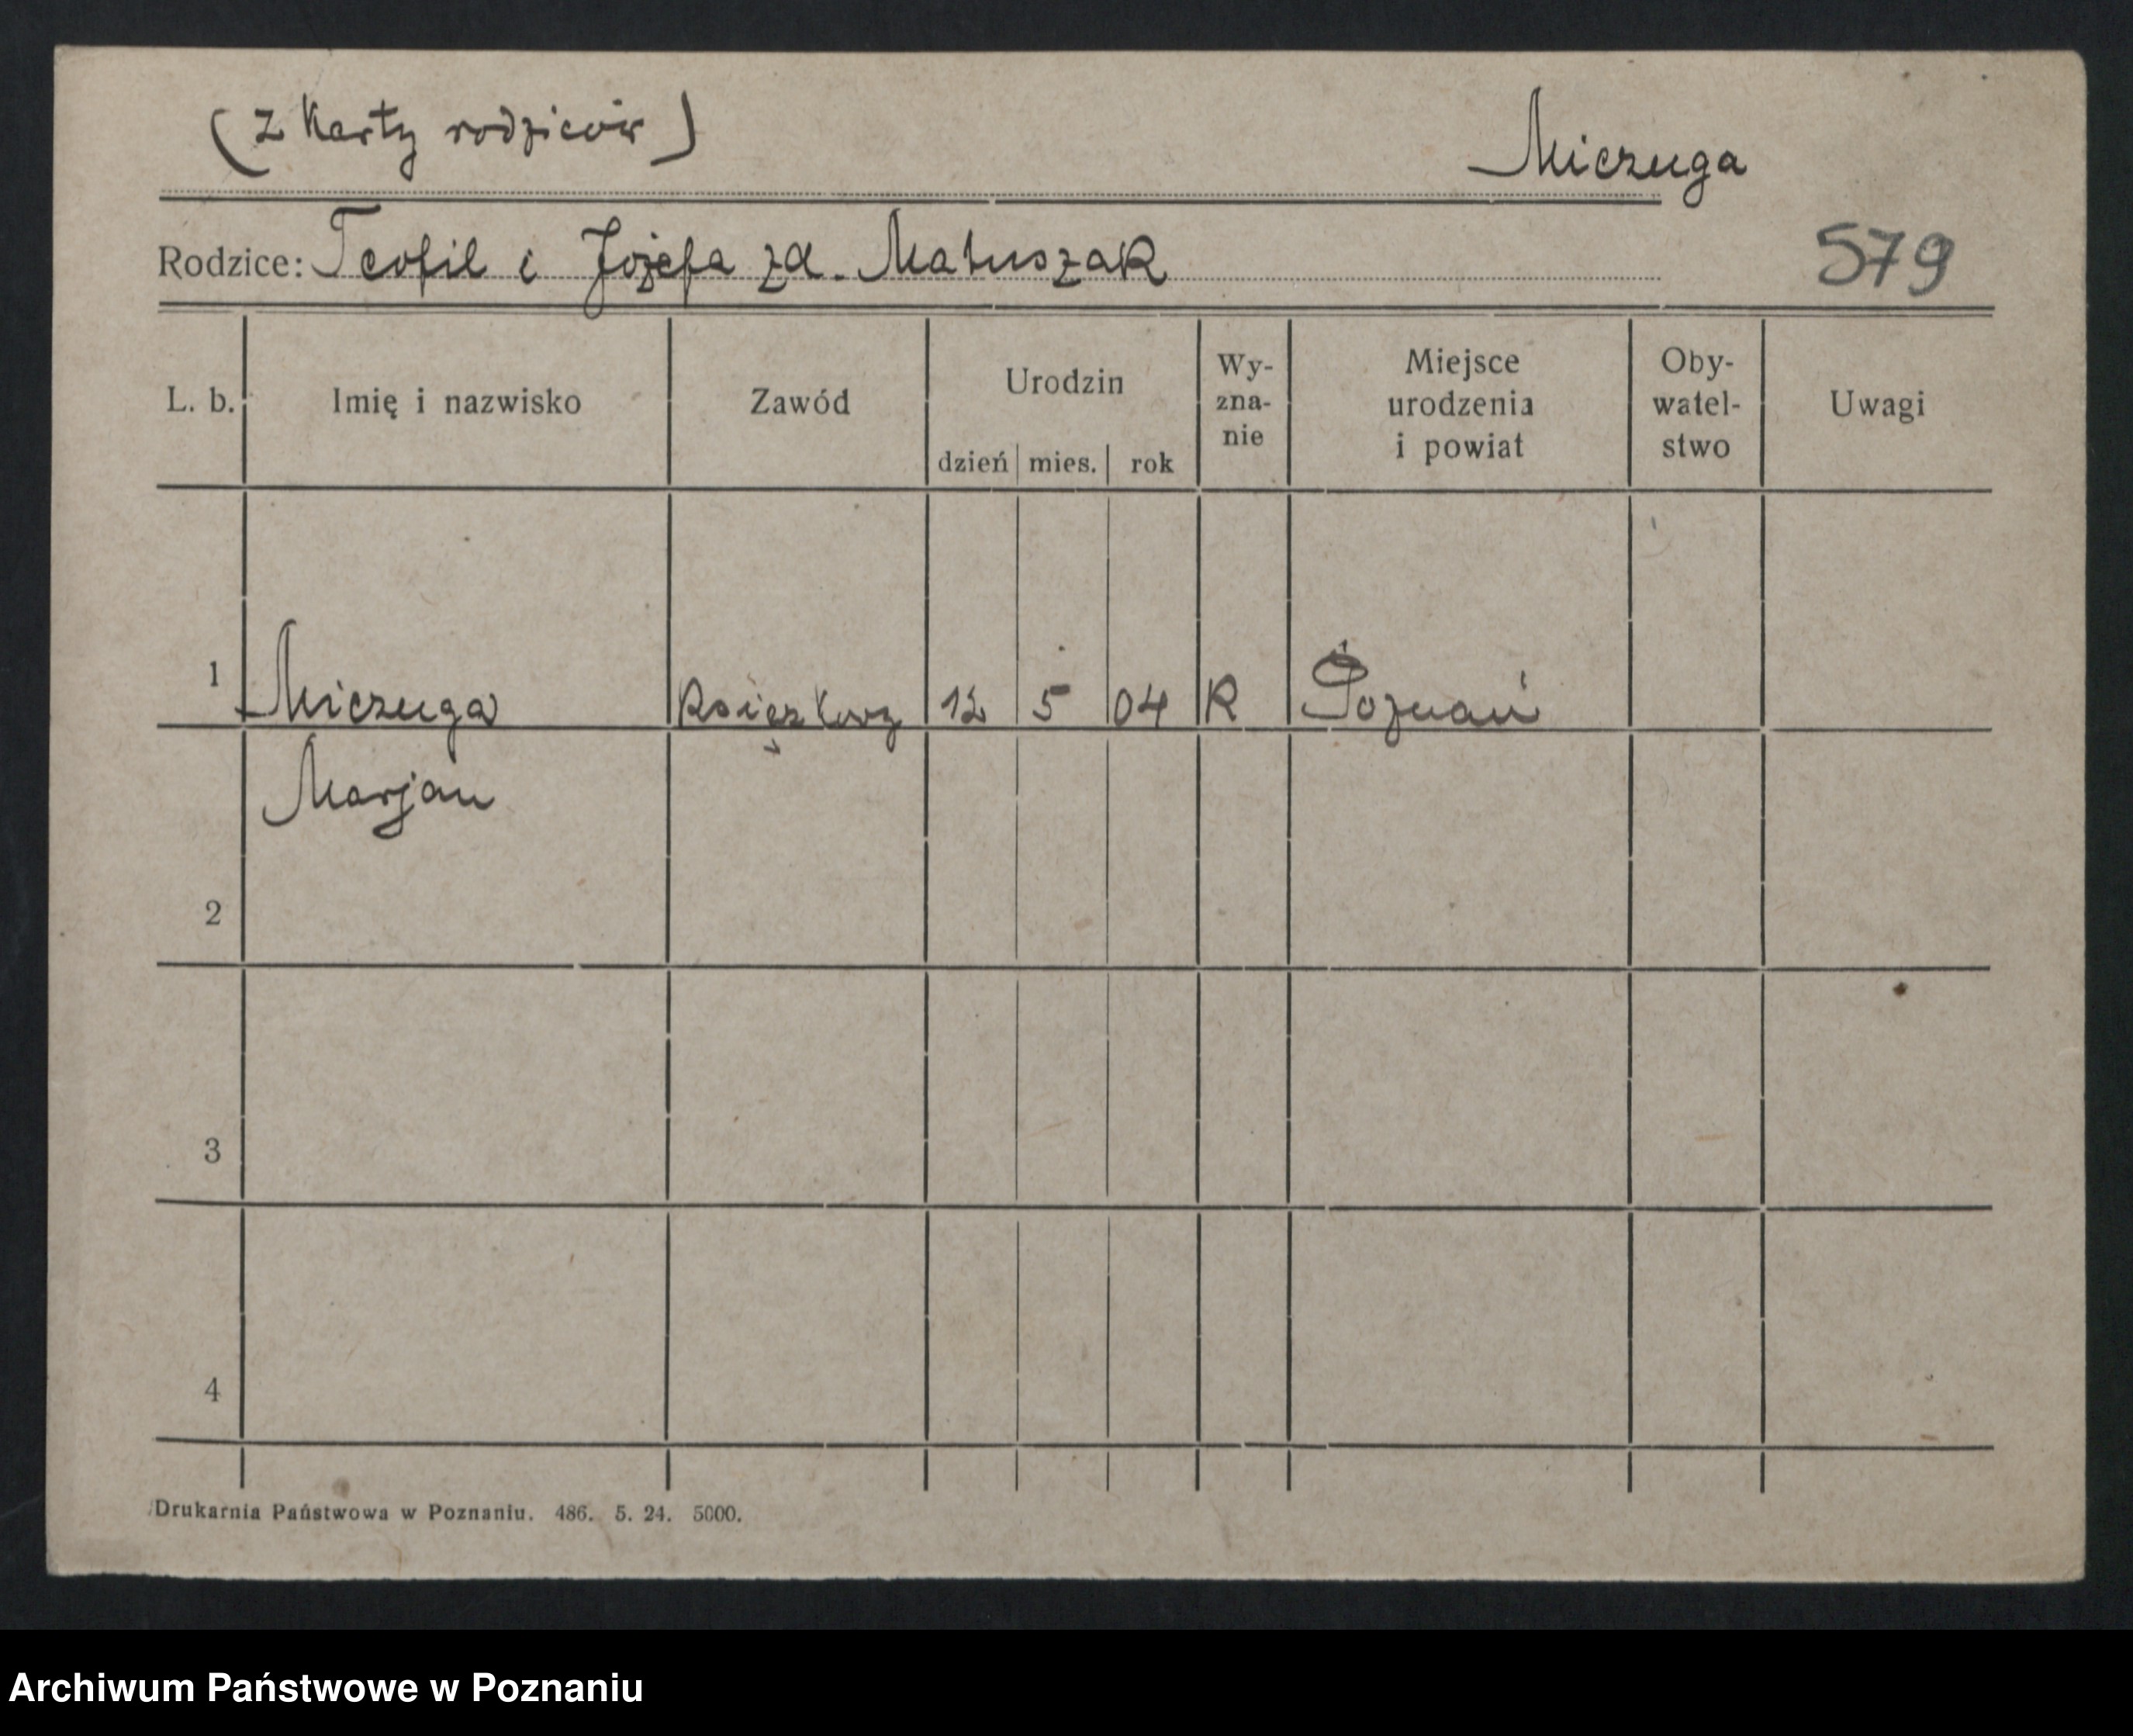 (z Karty rodziców)
Miczuga
Rodzice: Teofil i Józefa zd. Matuszak
579
L. b. Imię i nazwisko Zawód Urodzin dzień mies. rok Wy-zna-nie Miejsce urodzenia i powiat Oby-watel-stwo Uwagi
1 Miczuga 12 5 04 R Poznań
Marjan
2
3
4
Drukarnia Państwowa w Poznaniu. 486. 5. 24. 5000.
Archiwum Państwowe w Poznaniu